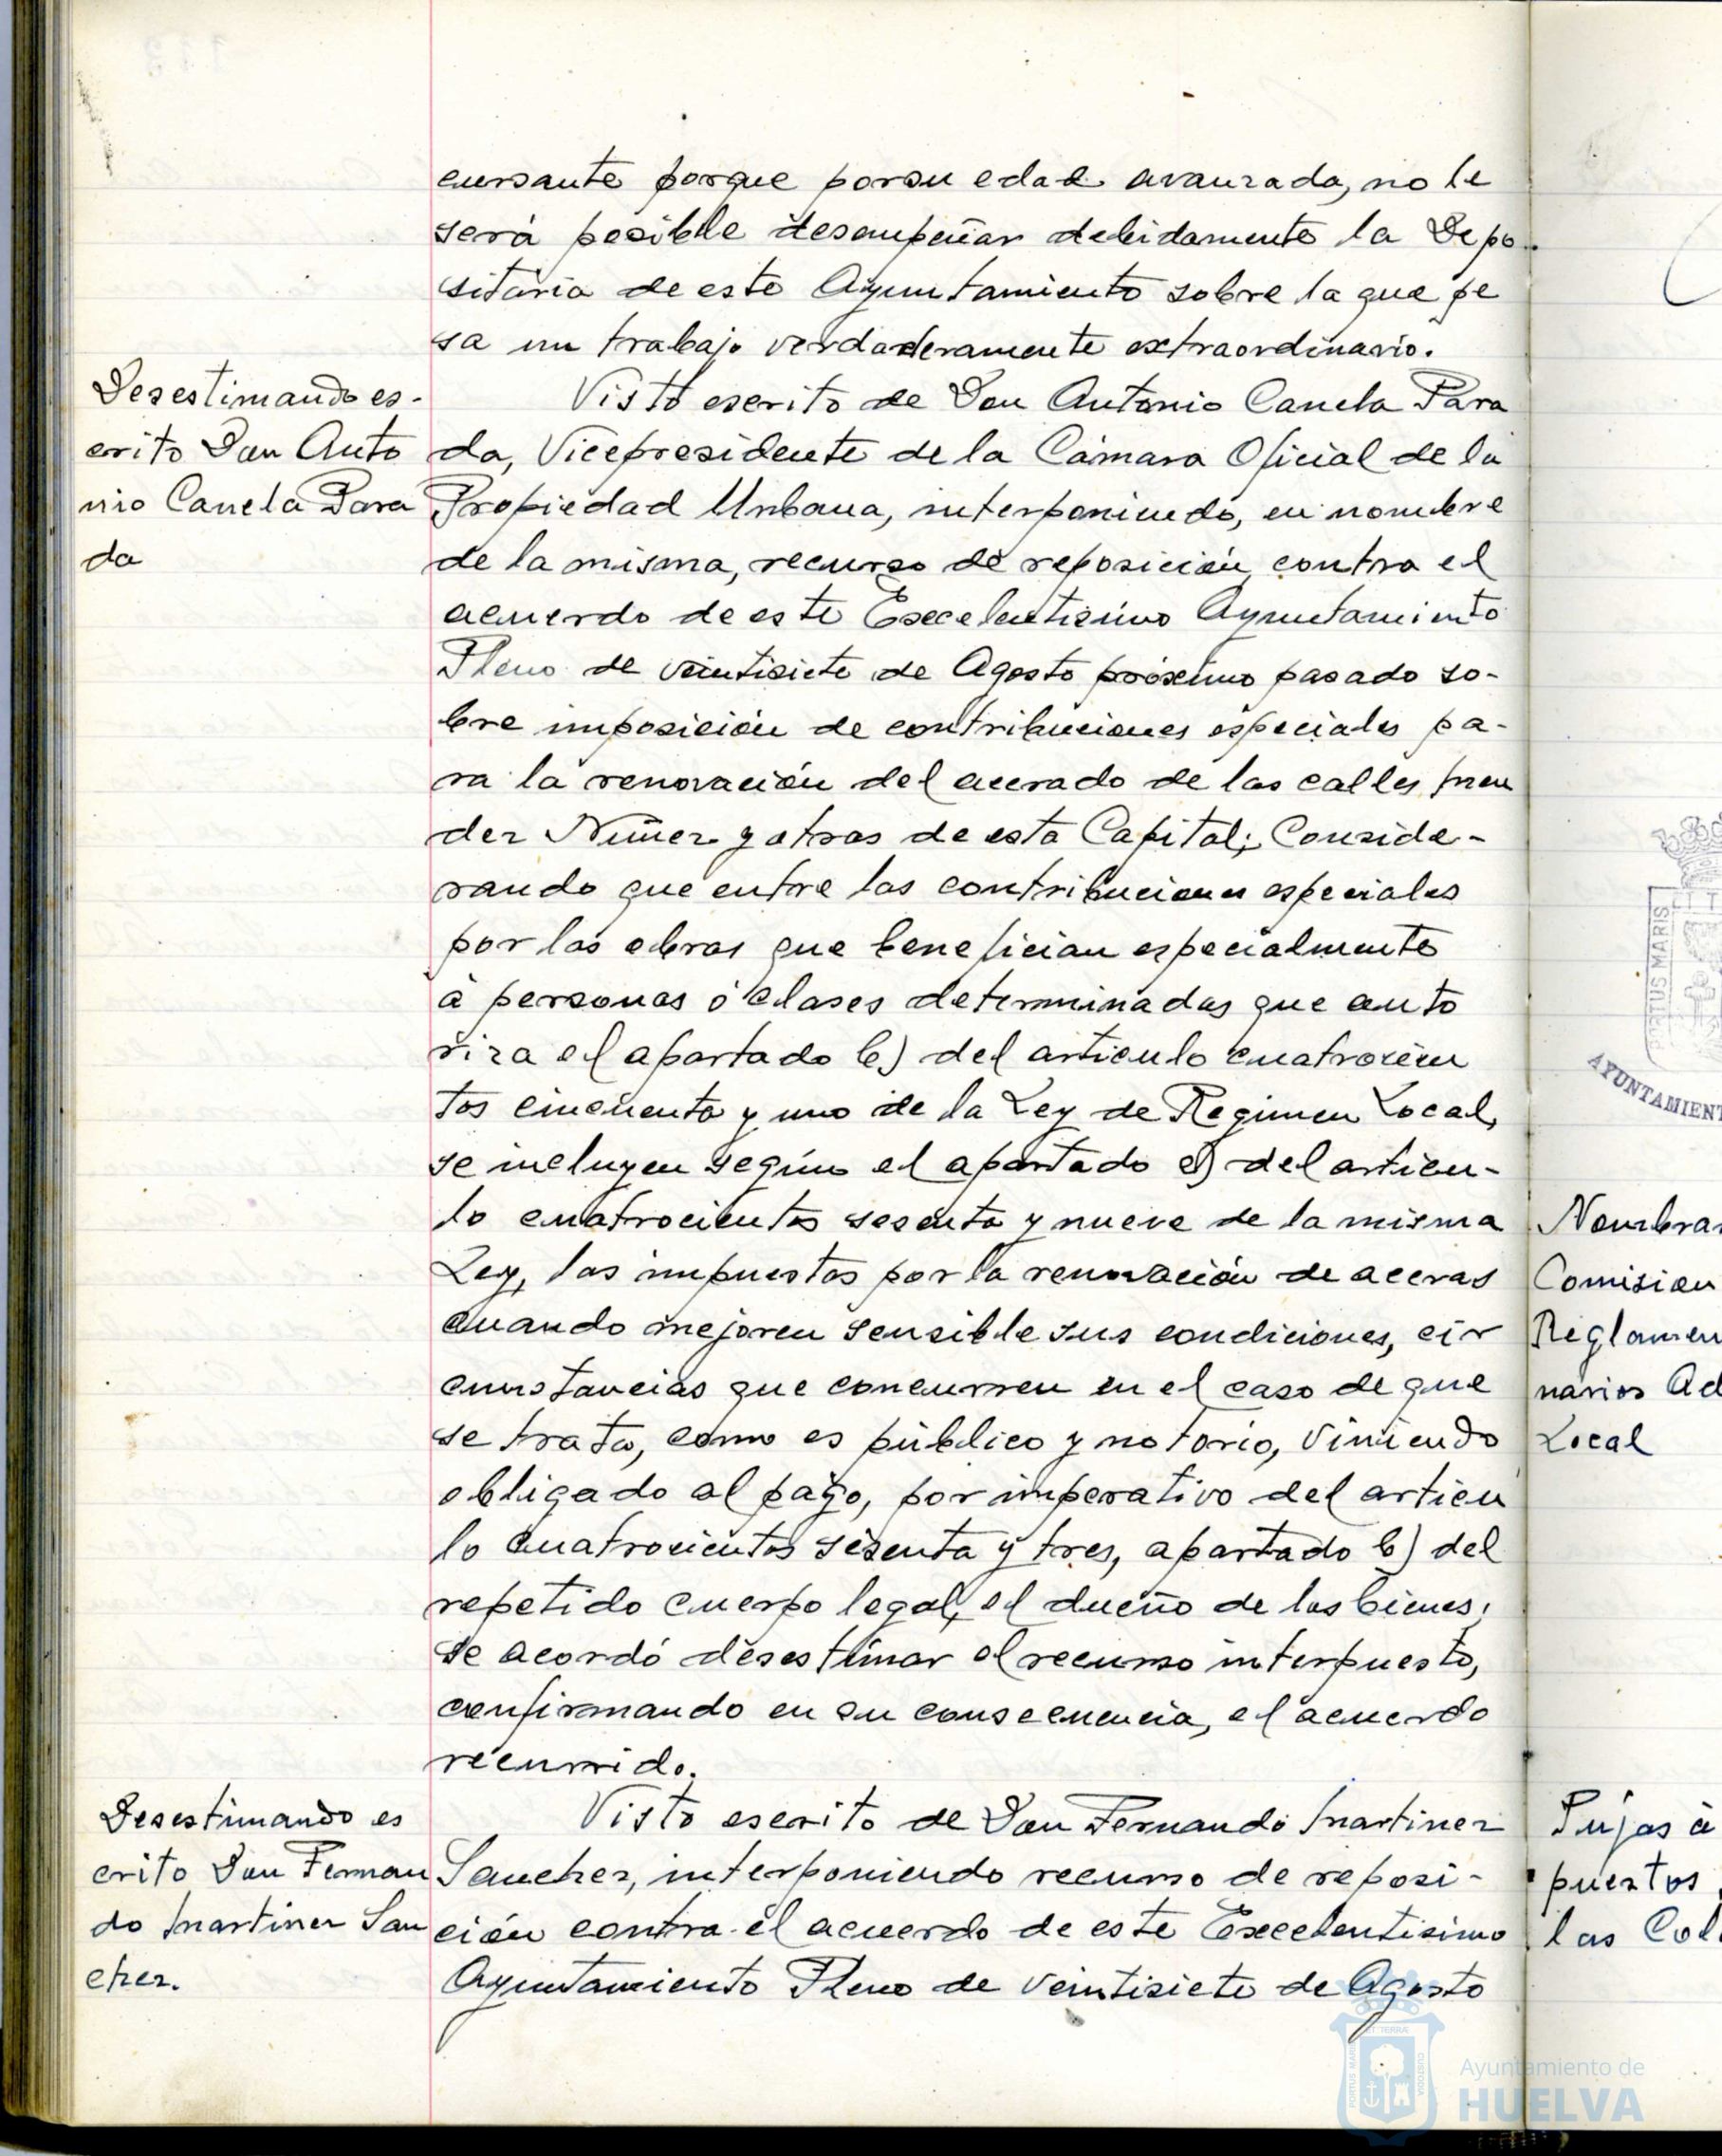 cursante porque por su edad avanzada, no le
será posible desempeñar debidamente la Depo-
sitaria de este Ayuntamiento sobre la que pe
sa un trabajo verdaderamente extraordinario.
Desestimando es-
crito Don Anto
nio Canela Para
da
Visto escrito de Don Antonio Canela Para
da, Vicepresidente de la Cámara Oficial de la
Propiedad Urbana, interponiendo, en nombre
de la misma, recurso de reposición contra el
acuerdo de este Excelentísimo Ayuntamiento
Pleno de veintisiete de Agosto próximo pasado so-
bre imposición de contribuciones especiales pa-
ra la renovación del acerado de las calles Men
dez Nuñez y otras de esta Capital; Conside-
rando que entre las contribuciones especiales
por las obras que benefician especialmente
á personas ó clases determinadas que auto
riza el apartado b) del articulo cuatrocien
tos cincuenta y uno de la Ley de Regimen Local,
se incluyen según el apartado e) del articu-
lo cuatrocientos sesenta y nueve de la misma
Ley, las impuestas por la renovación de aceras
cuando mejoren sensible sus condiciones, cir
cunstancias que concurren en el caso de que
se trata, como es público y notorio, viniendo
obligado al pago, por imperativo del articu
lo cuatrocientos sesenta y tres, apartado b) del
repetido cuerpo legal, el dueño de los bienes;
se acordó desestimar el recurso interpuesto,
confirmando en su consecuencia, el acuerdo
recurrido.
Desestimando es
crito Don Fernan
do Martinez San
chez.
Visto escrito de Don Fernando Martinez
Sanchez, interponiendo recurso de reposi-
ción contra el acuerdo de este Excelentisimo
Ayuntamiento Pleno de veintisiete de Agosto
PORTUS MARIS
AYUNTAMIENT
Nombra
Comision
Reglamen
narios Ad
Local
Pujas á
puestos
las Col
Ayuntamiento de
HUELVA